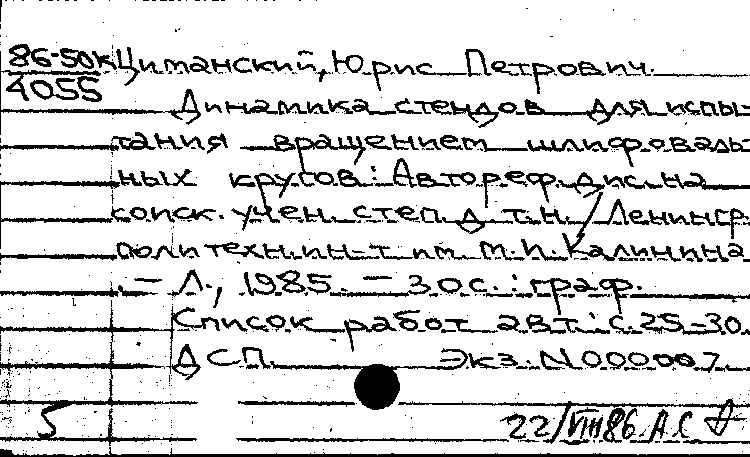 86-50к Циманский, Юрис Петрович.
4055
Динамика стендов для испы-
тания вращением шлифоваль-
ных кругов: Автореф. дис. на
соиск. учен. степ. д. т. н. / Ленингр.
политехн. ин-т им. М. И. Калинина
. — Л., 1985. — 30 с. : граф.
Список работ авт.: с. 25-30
ДСП. Экз. N 000007.
5
22/VIII 86. А.С.